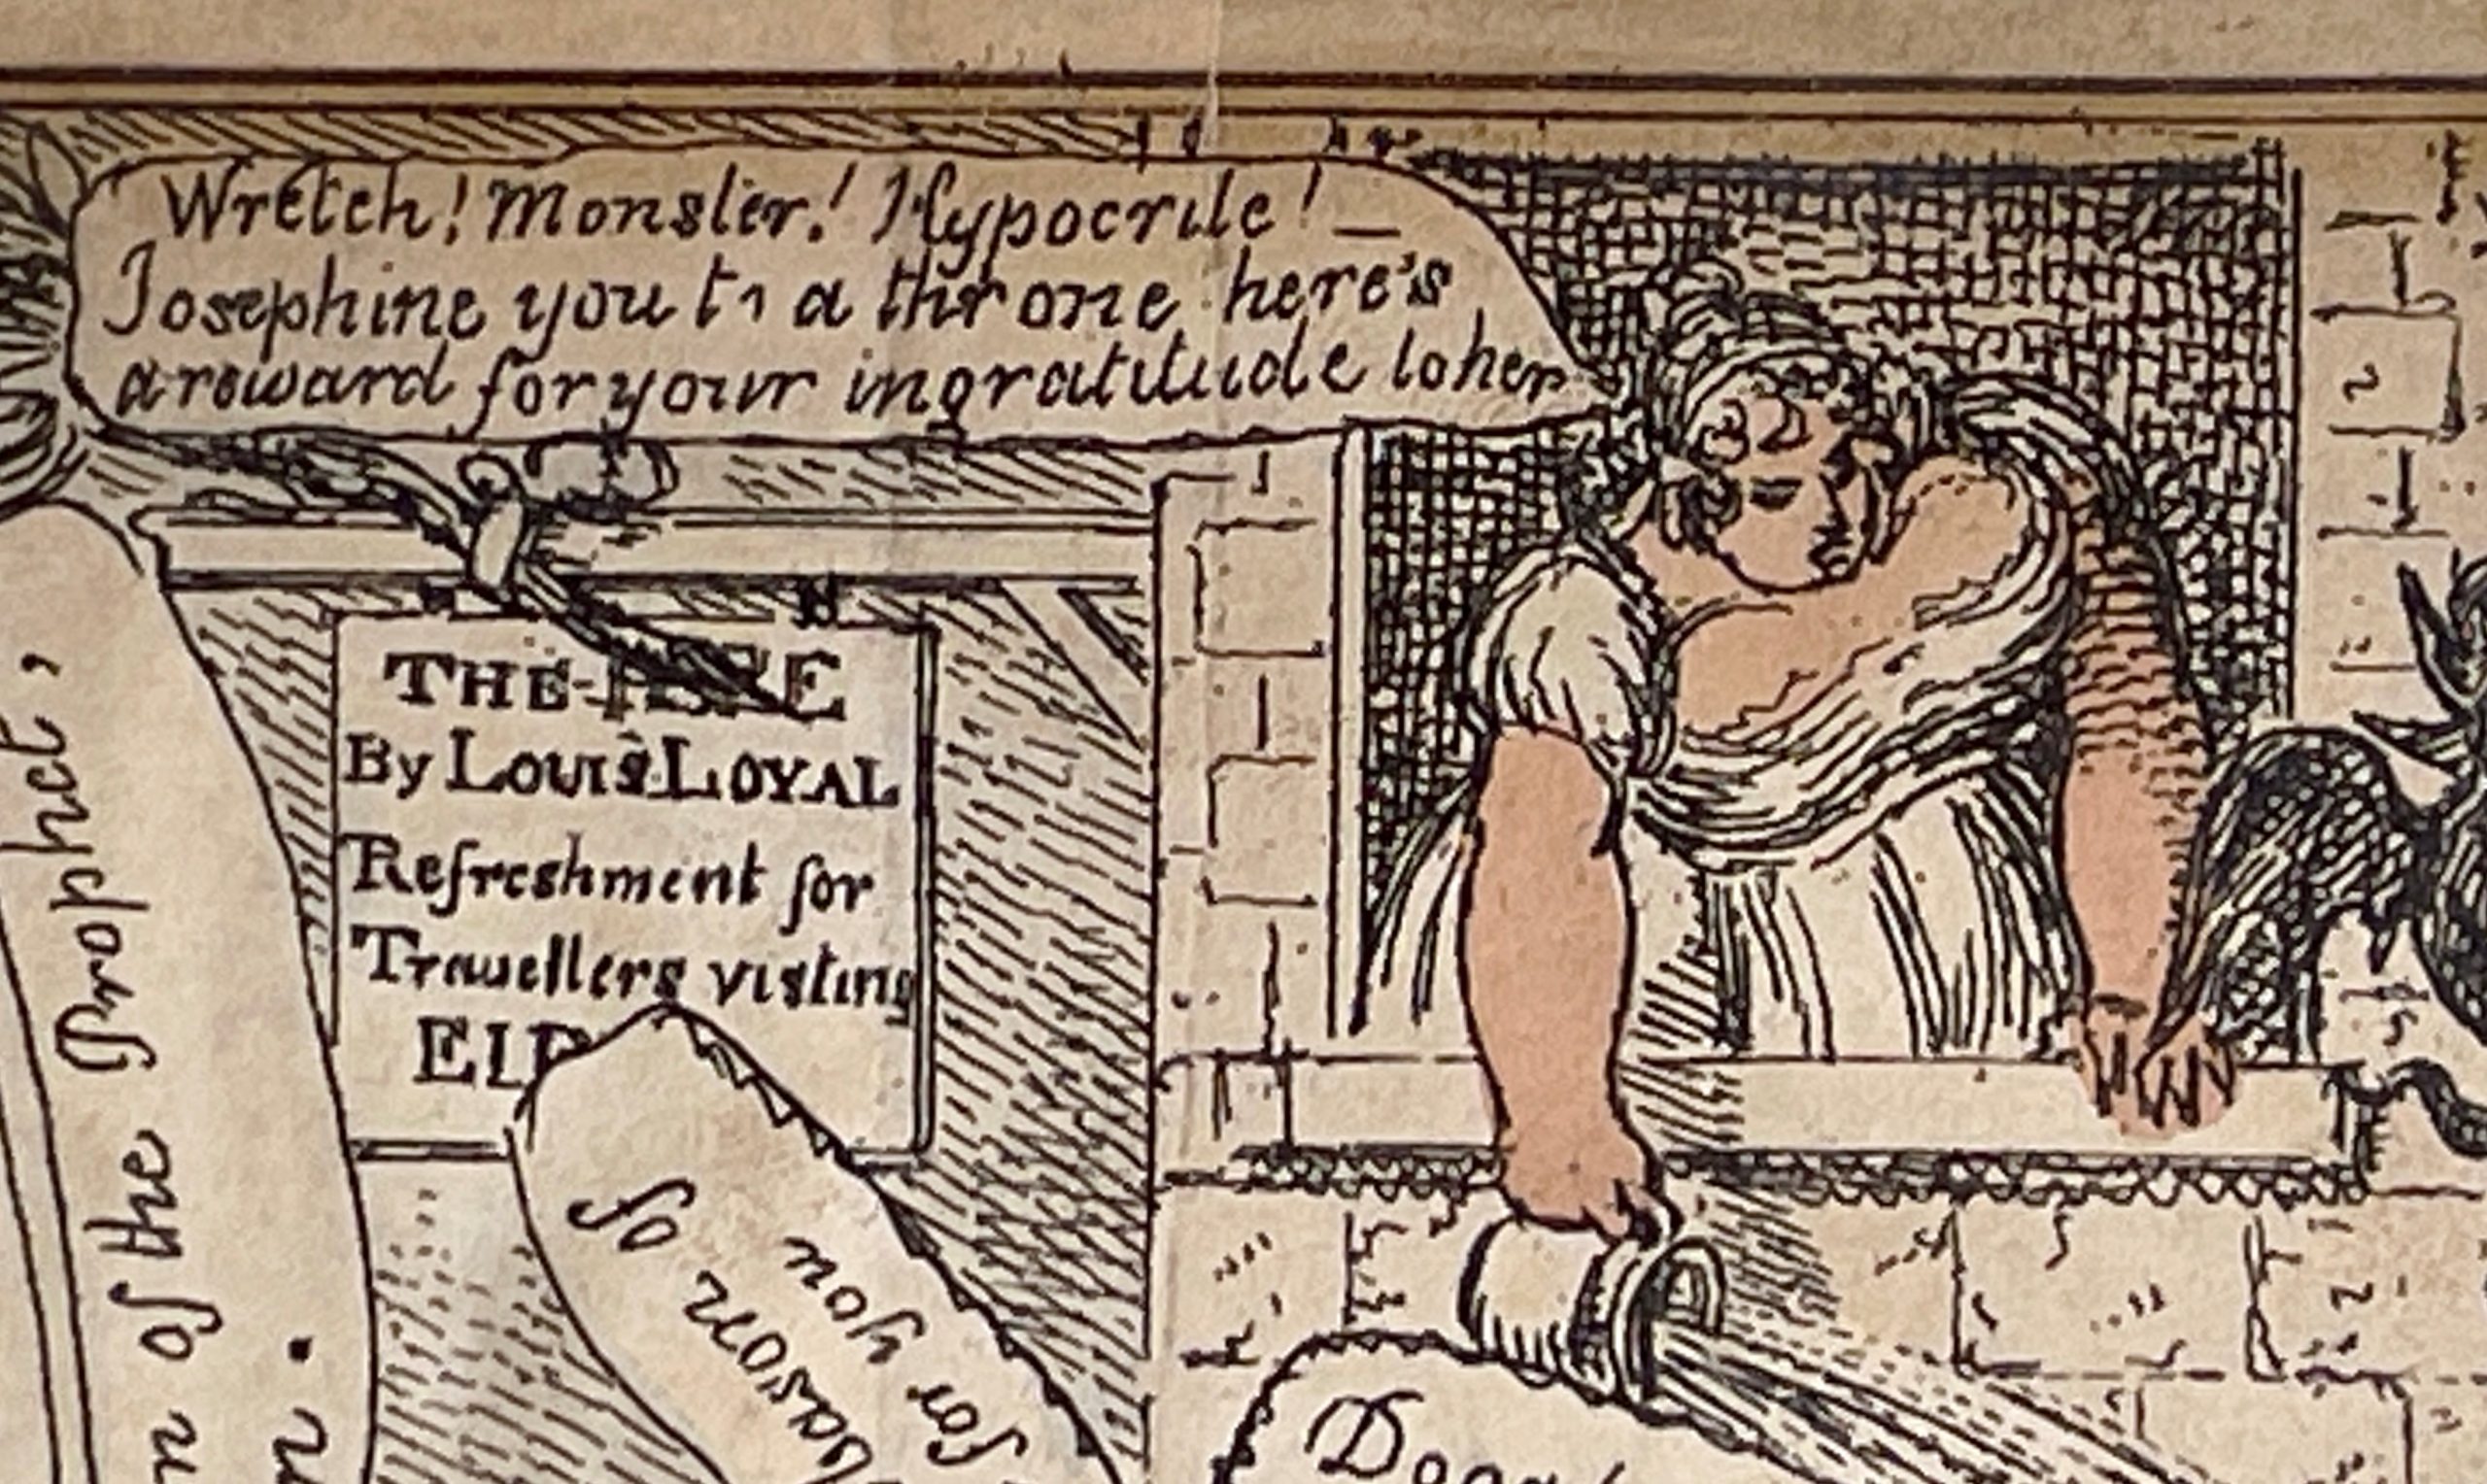 Wretch! Monster! Hypocrite! —
Josephine you to a throne here's
a reward for your ingratitude to her
THE
By LOUIS LOYAL
Refreshment for
Travellers visting
EL
of the Prophet,
n.
of
for you
Dogg